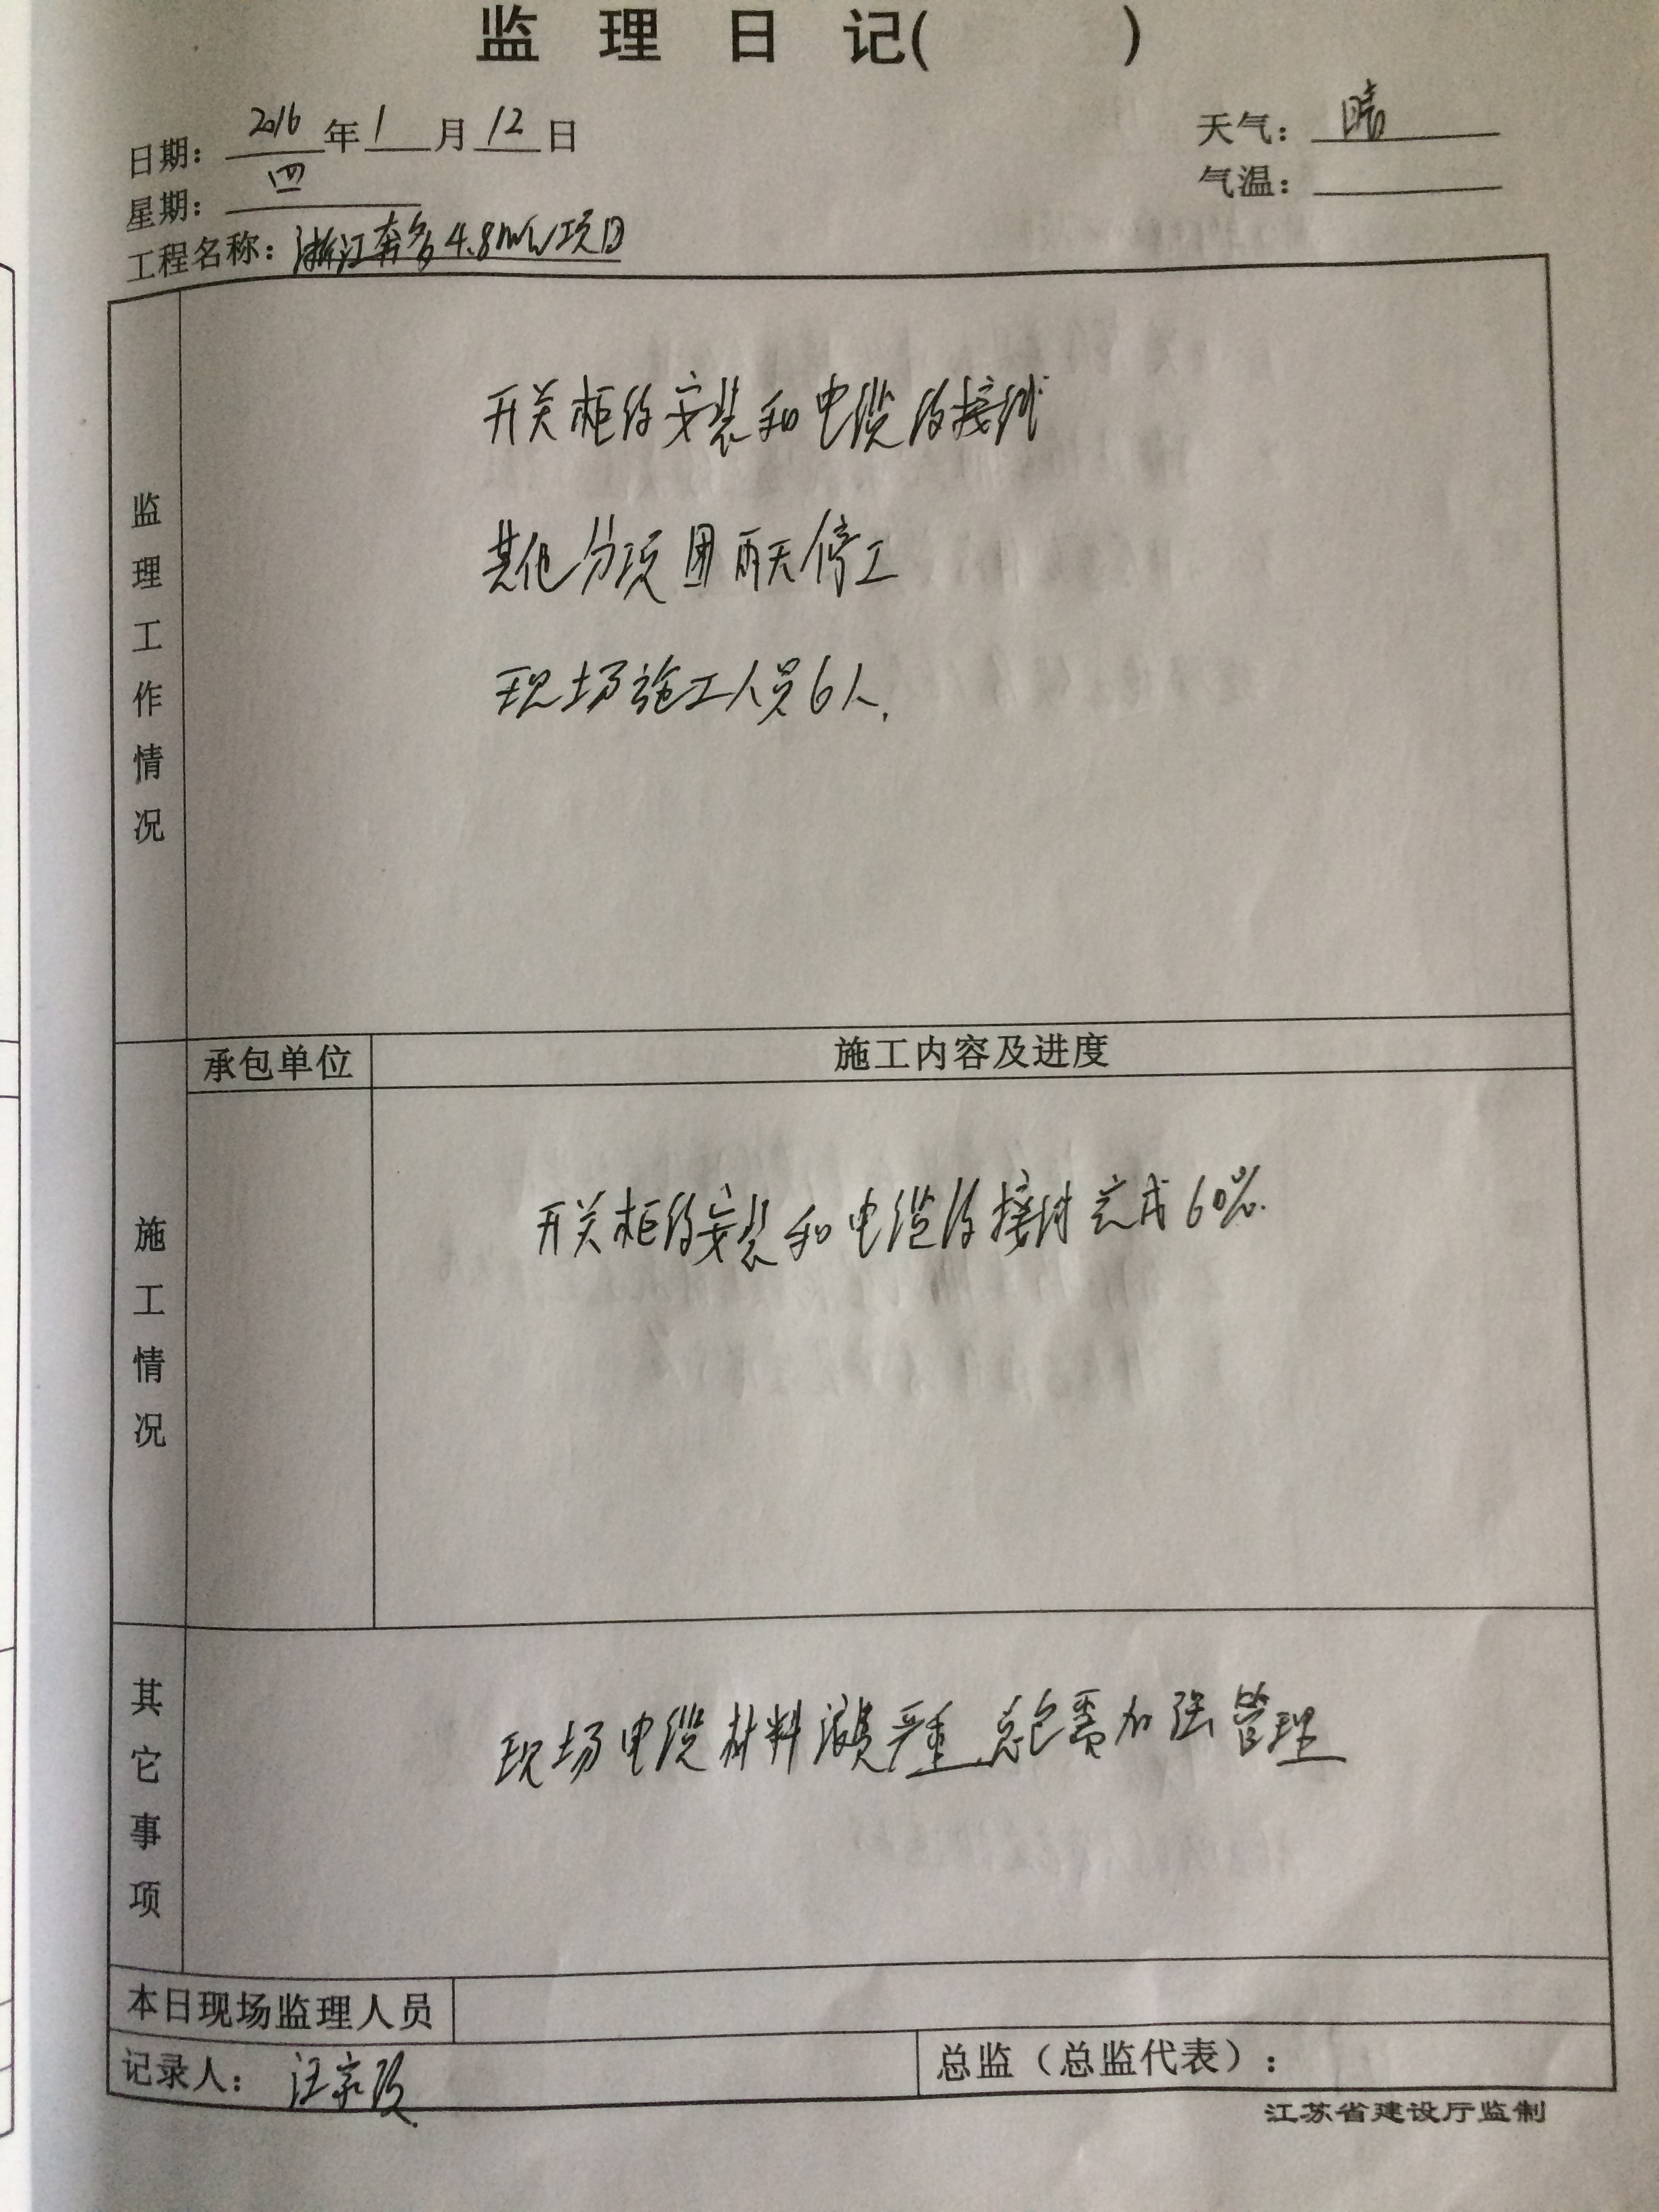 监 理 日 记( )
日期: 2016 年 1 月 12 日
天气: 晴
星期: 四
气温:
工程名称: 浙江奔多4.8mw项目
监理工作情况
开关柜的安装和电缆的接线
其他分项因雨天停工
现场施工人员6人.
承包单位
施工内容及进度
施工情况
开关柜的安装和电缆的接线完成60%.
其它事项
现场电缆材料浪费严重 总包需加强管理
本日现场监理人员
记录人: 汪家
总监（总监代表）:
江苏省建设厅监制